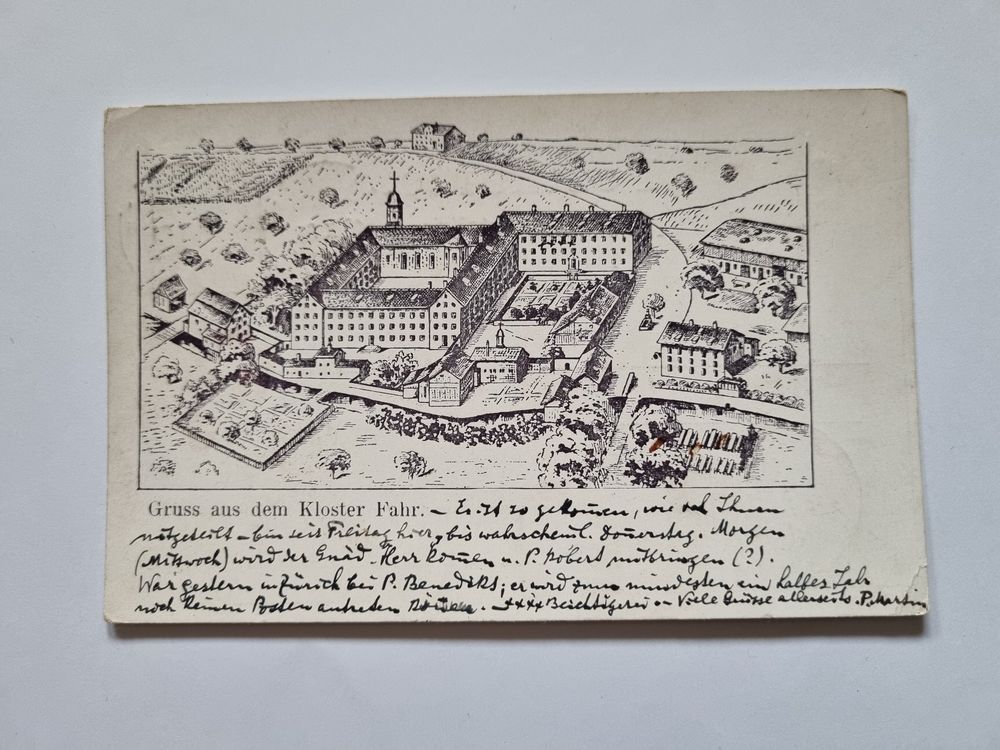 Gruss aus dem Kloster Fahr. – Es ist so gekommen, wie ich Ihnen
mitgeteilt – bin seit Freitag hier, bis wahrscheinl. Donnerstag. Morgen
(Mittwoch) wird der Gnäd. Herr kommen u. P. Robert mitbringen (?).
War gestern in Zürich bei P. Benedikt; er wird zum mindesten ein halbes Jahr
noch keinen Posten antreten können. – ++++ Beichtigerei – Viele Grüsse allerseits. P. Martin